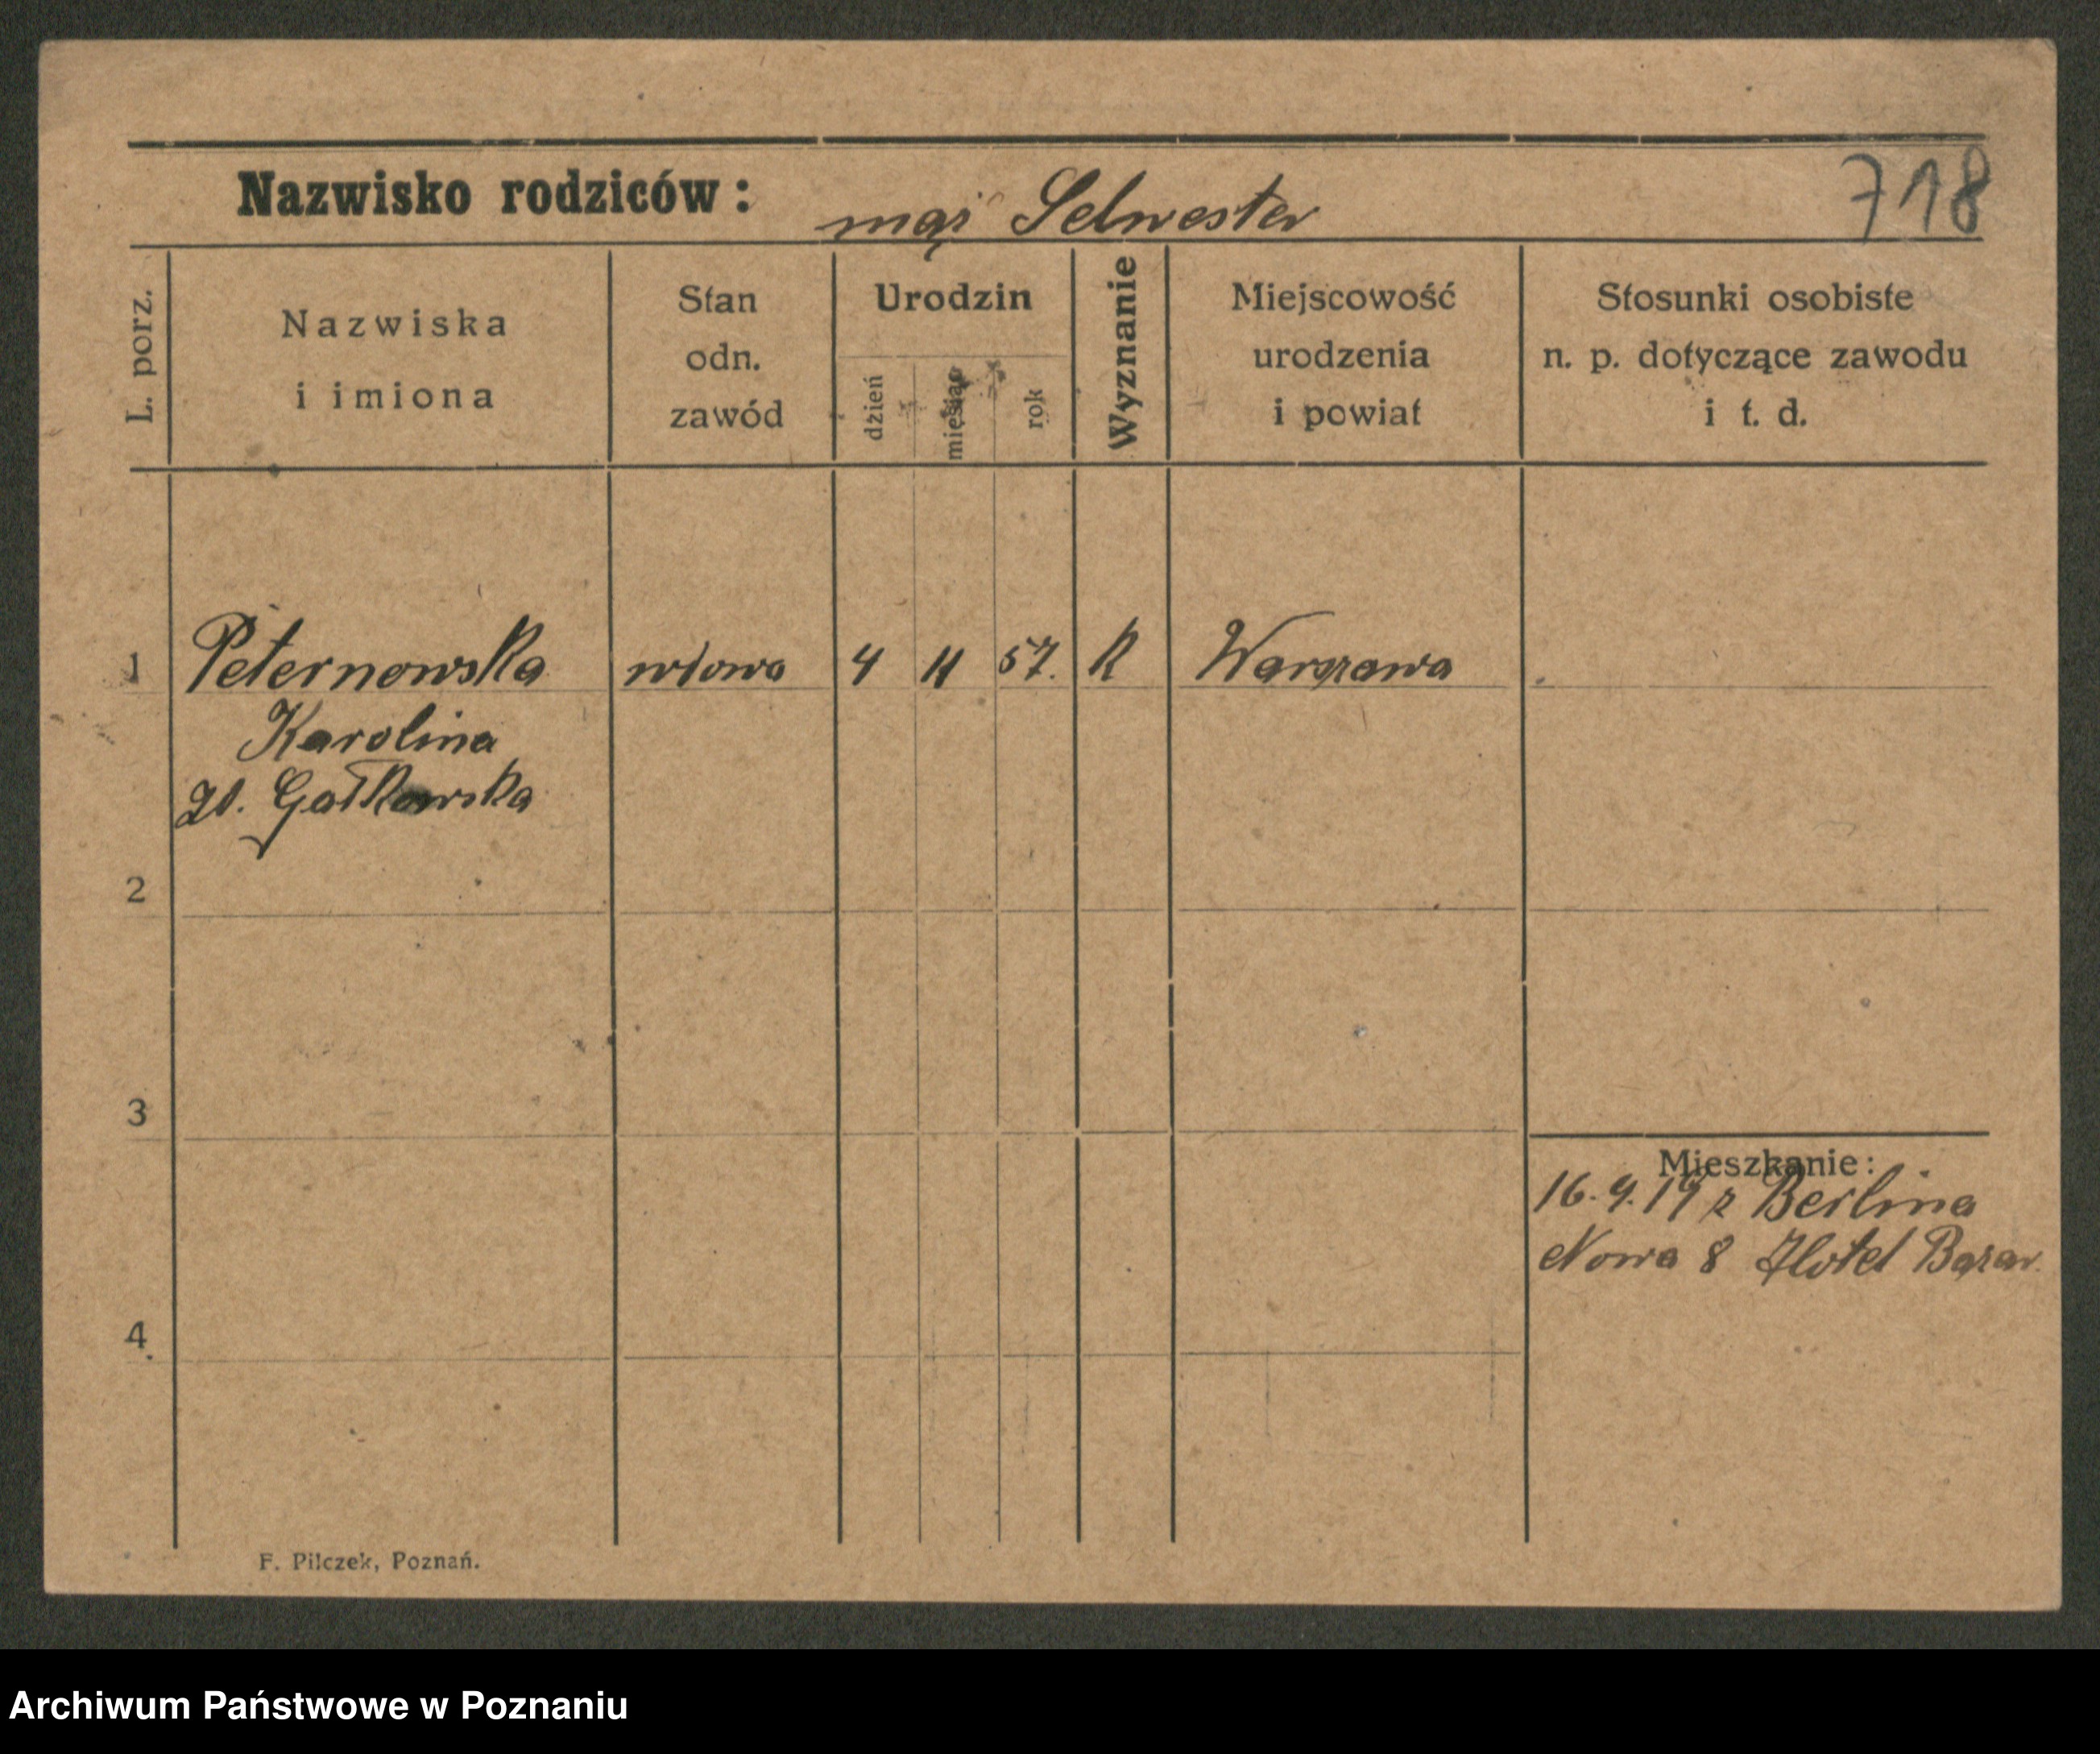 Nazwisko rodziców: mąż Selwester
718
L. porz.
Nazwiska
i imiona
Stan
odn.
zawód
Urodzin
dzień
miesiąc
rok
Wyznanie
Miejscowość
urodzenia
i powiat
Stosunki osobiste
n. p. dotyczące zawodu
i t. d.
1 Peternowska wdowa 4 11 57. K Warszawa
Karolina
zd. Gałkowska
2
3
Mieszkanie:
16.9.19 z Berlina
Nowa 8 Hotel Bazar
4
F. Pilczek, Poznań.
Archiwum Państwowe w Poznaniu